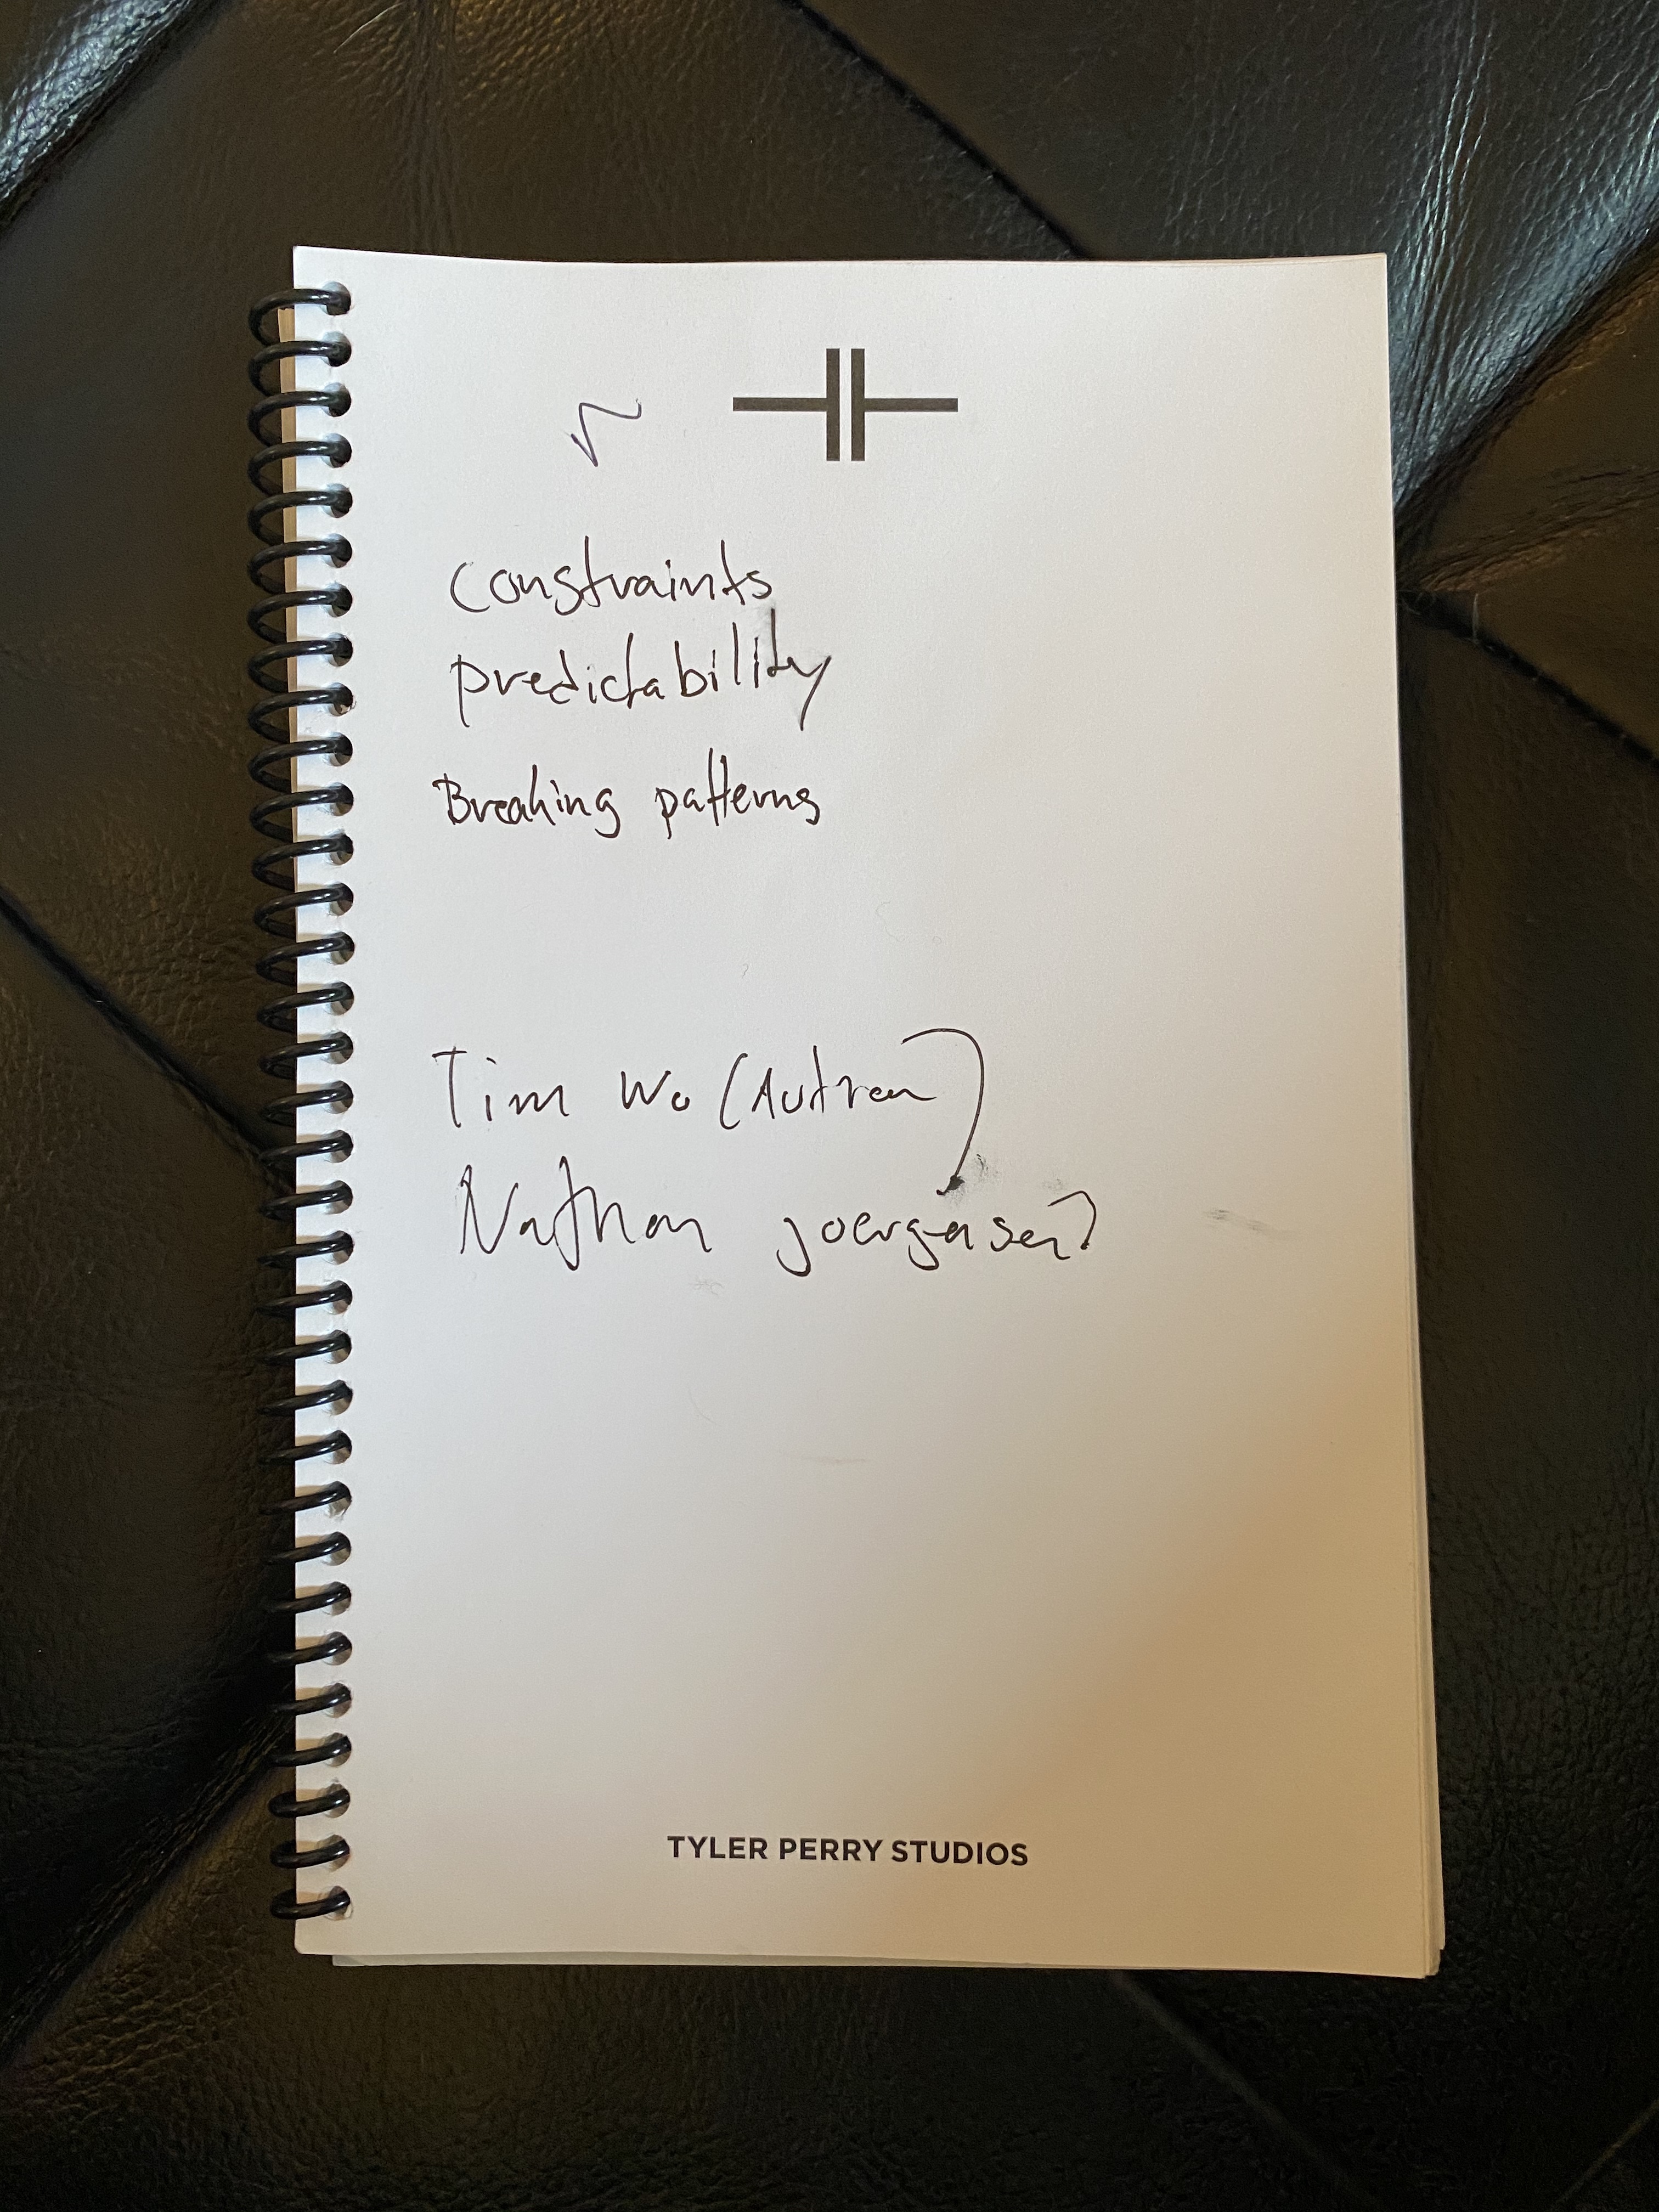 Constraints
predictability
Breaking patterns
Tim Wo (Autren)
Nathan joergensen
TYLER PERRY STUDIOS